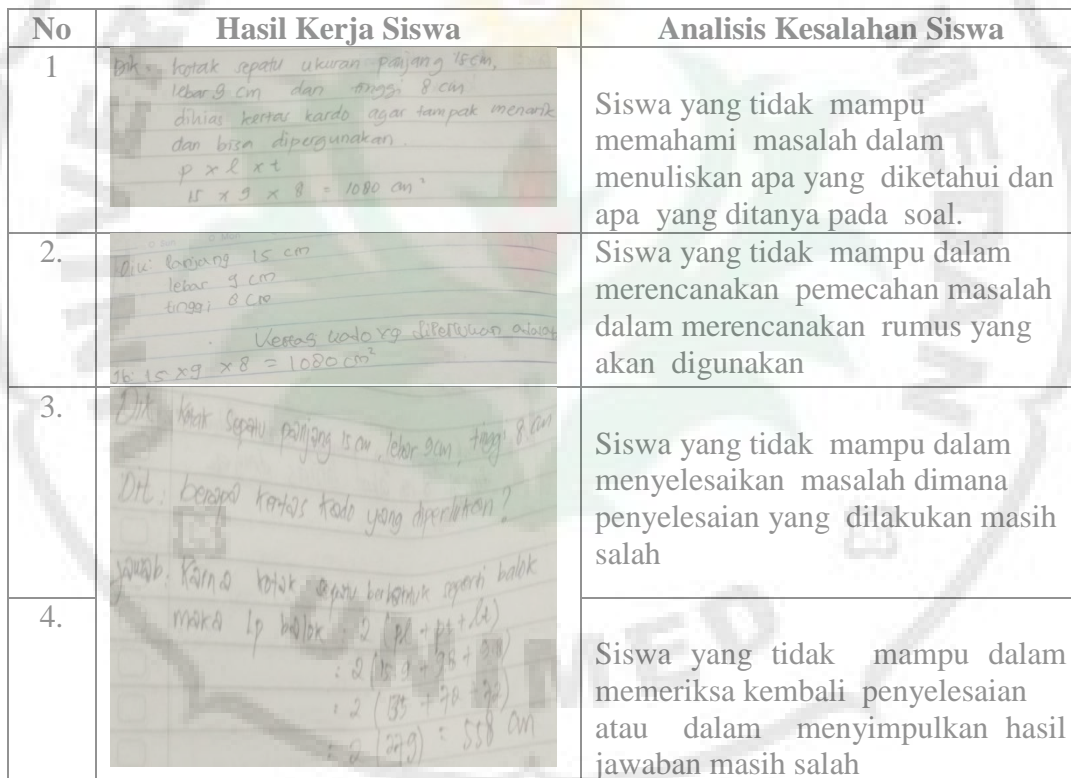 No Hasil Kerja Siswa Analisis Kesalahan Siswa
1
Dik: kotak sepatu ukuran panjang 15 cm,
lebar 9 cm dan tinggi 8 cm
dihias kertas kardo agar tampak menarik
dan bisa dipergunakan.
p x l x t
15 x 9 x 8 = 1080 cm²
Siswa yang tidak mampu
memahami masalah dalam
menuliskan apa yang diketahui dan
apa yang ditanya pada soal.
2.
panjang 15 cm
lebar 9 cm
tinggi 8 cm
Kertas kado yg diperlukan adalah
Jb: 15 x 9 x 8 = 1080 cm²
Siswa yang tidak mampu dalam
merencanakan pemecahan masalah
dalam merencanakan rumus yang
akan digunakan
3.
Dik kotak sepatu panjang 15 cm, lebar 9 cm, tinggi 8 cm
Dit: berapa kertas kado yang diperlukan?
jawab: Karna kotak sepatu berbentuk seperti balok
Siswa yang tidak mampu dalam
menyelesaikan masalah dimana
penyelesaian yang dilakukan masih
salah
4.
maka Lp balok : 2 (pl + pt + lt)
: 2
: 2
: 2 (279) : 558 cm
Siswa yang tidak mampu dalam
memeriksa kembali penyelesaian
atau dalam menyimpulkan hasil
jawaban masih salah
UNIMED
MEDAN